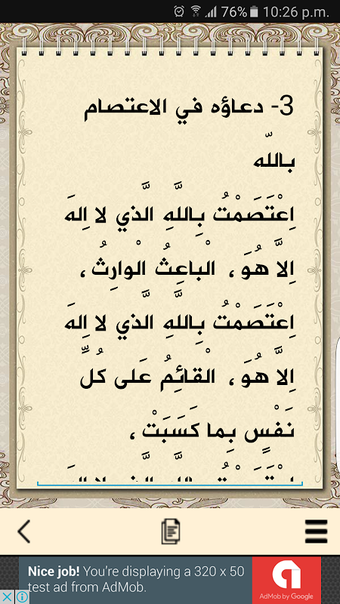 76% 10:26 p.m.
3- دعاؤه في الاعتصام
بالله
اِعْتَصَمْتُ بِاللَّهِ الَّذي لا اِلهَ
اِلاَّ هُوَ ، الْباعِثُ الْوارِثُ ،
اِعْتَصَمْتُ بِاللَّهِ الَّذي لا اِلهَ
اِلاَّ هُوَ ، الْقائِمُ عَلى كُلِّ
نَفْسٍ بِما كَسَبَتْ ،
Nice job! You're displaying a 320 x 50
test ad from AdMob.
AdMob by Google